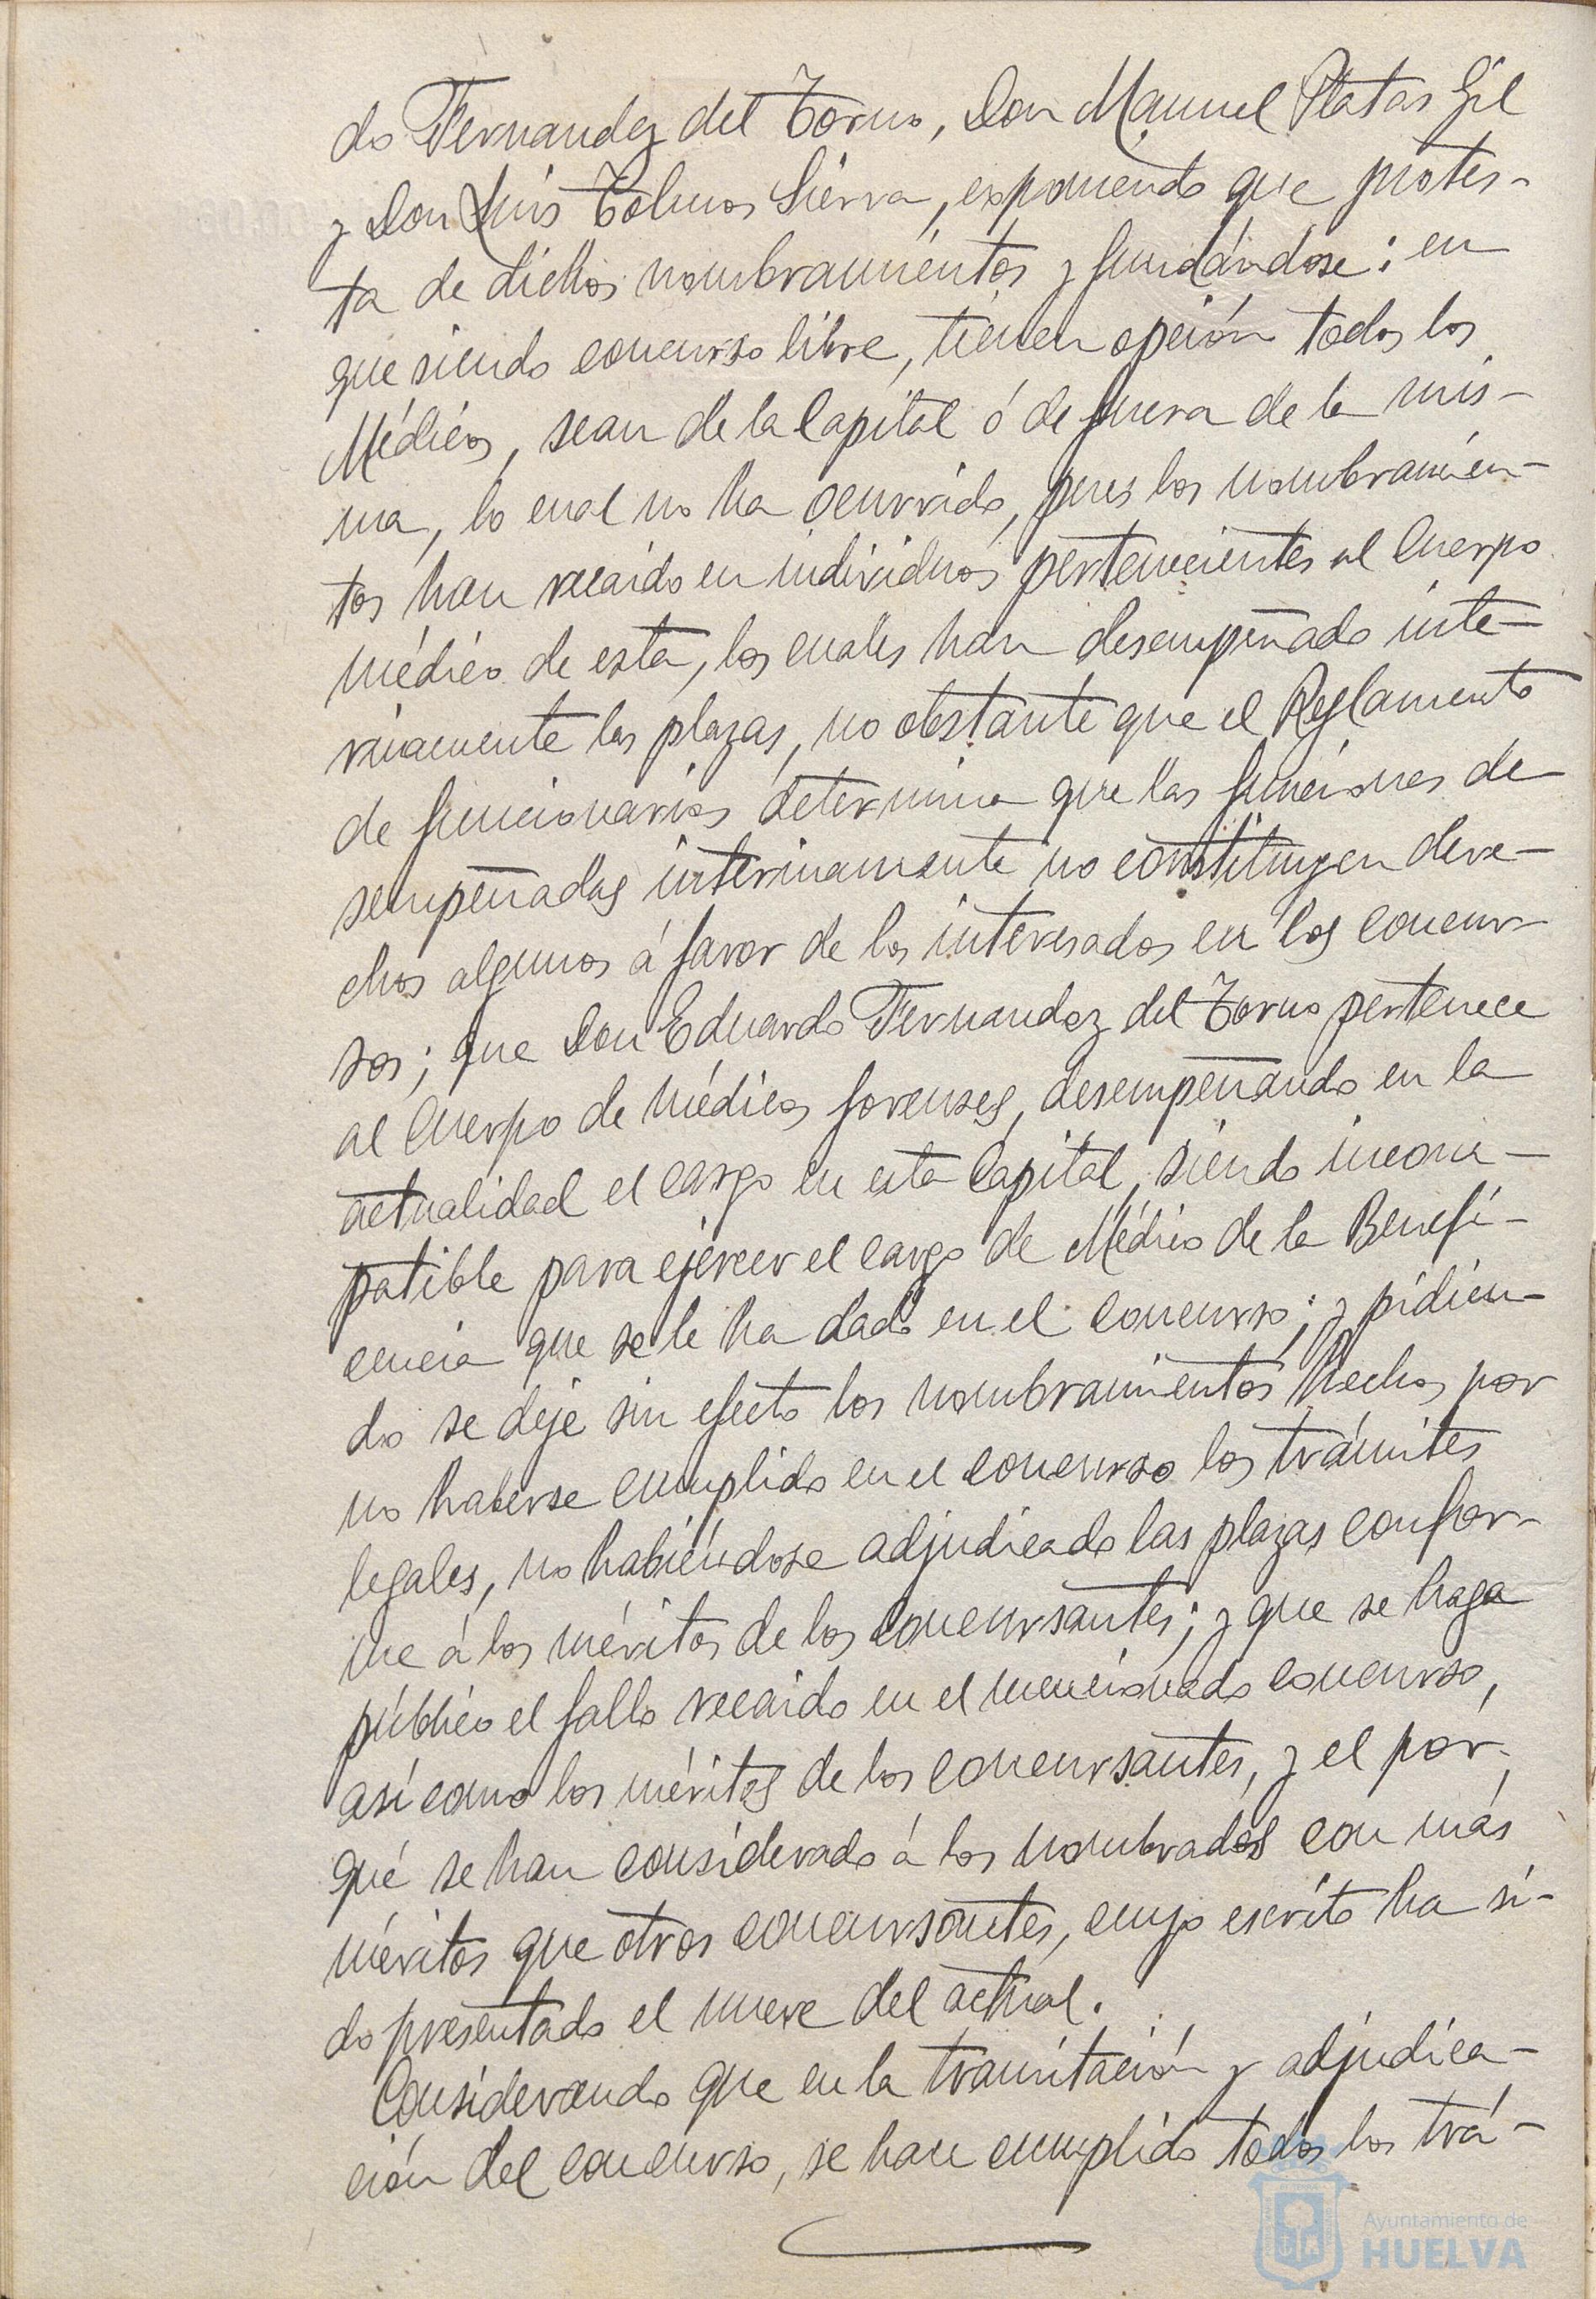 do Fernandez del Torno, Don Manuel Platas Gil
y Don Luis Tolmos Sierra, exponiendo que protes-
ta de dichos nombramientos y fundándose: en
que siendo concurso libre, tienen opción todos los
Médicos, sean de la Capital ó de fuera de la mis-
ma, lo cual no ha ocurrido, pues los nombramien-
tos han recaido en individuos pertenecientes al Cuerpo
médico de esta, los cuales han desempeñado inte-
rinamente las plazas, no obstante que el Reglamento
de funcionarios determina que las funciones de
sempeñadas interinamente no constituyen dere-
chos algunos á favor de los interesados en los concur-
sos; que Don Eduardo Fernandez del Torno pertenece
al Cuerpo de Médicos forenses, desempeñando en la
actualidad el cargo en esta Capital, siendo incom-
patible para ejercer el cargo de Médico de la Benefi-
cencia que se le ha dado en el concurso; y pidien-
do se deje sin efecto los nombramientos hechos por
no haberse cumplido en el concurso los trámites
legales, no habiéndose adjudicado las plazas confor-
me á los méritos de los concursantes; y que se haga
público el fallo recaido en el mencionado concurso,
así como los méritos de los concursantes, y el por
qué se han considerado á los nombrados con más
méritos que otros concursantes, cuyo escrito ha si-
do presentado el nueve del actual.
Considerando que en la tramitación y adjudica-
ción del concurso, se han cumplido todos los trá-
Ayuntamiento de
HUELVA